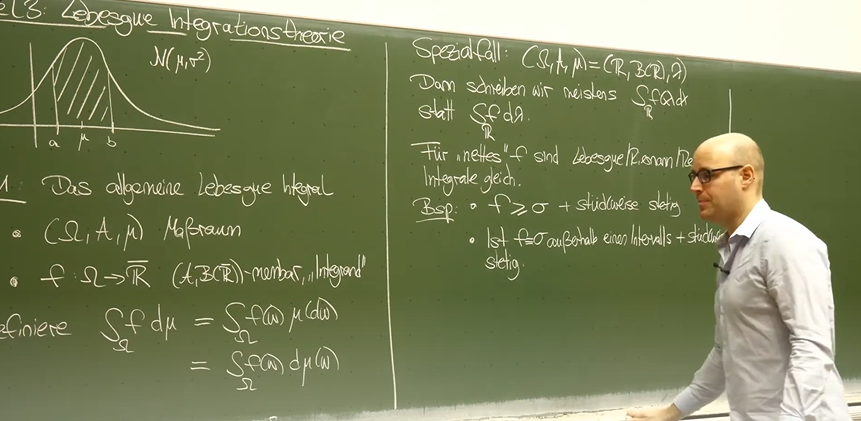 el 3: Lebesgue Integrationstheorie
N(μ,σ²)
a μ b
1: Das allgemeine Lebesgue Integral
• (Ω, A, μ) Maßraum
• f: Ω → ℝ̅ (A, B(ℝ̅))-messbar, „Integrand"
efiniere ∫_Ω f dμ = ∫_Ω f(ω) μ(dω)
= ∫_Ω f(ω) dμ(ω)
Spezialfall: (Ω, A, μ) = (ℝ, B(ℝ), λ)
Dann schreiben wir meistens ∫_ℝ f(x) dx
statt ∫_ℝ f dλ.
Für „nettes" f sind Lebesgue/Riemann/
Integrale gleich.
Bsp: • f ⩾ 0 + stückweise stetig
• Ist f=0 außerhalb eines Intervalls + stückwe
stetig.